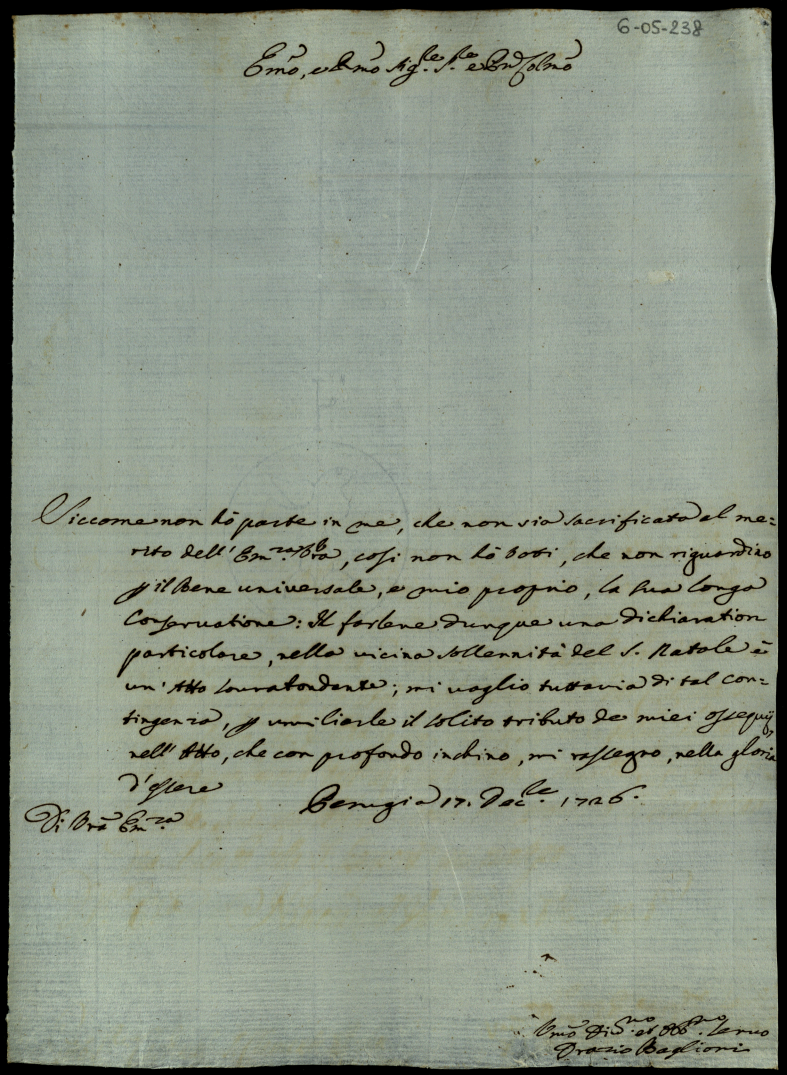 6-05-238
Emo, e Rmo Sigre Sre e Pne Colmo
Siccome non hò parte in me, che non sia sacrificata al me=
rito dell'Emza Vra, così non hò voti, che non riguardino
p il Bene universale, e mio proprio, la sua longa
Conservatione: Il farlene dunque una dichiaration
particolare, nella vicina sollennità del S. Natale è
un'Atto sourabondante; mi vaglio tuttavia di tal con=
tingenza, p umiliarle il solito tributo de miei ossequij,
nell'Atto, che con profondo inchino, mi rassegno, nella gloria
d'essere
Perugia 17. Decre. 1726.
Di Vra Emza
Vmo Diuno et Obbmo Seruo
Orazio Baglioni